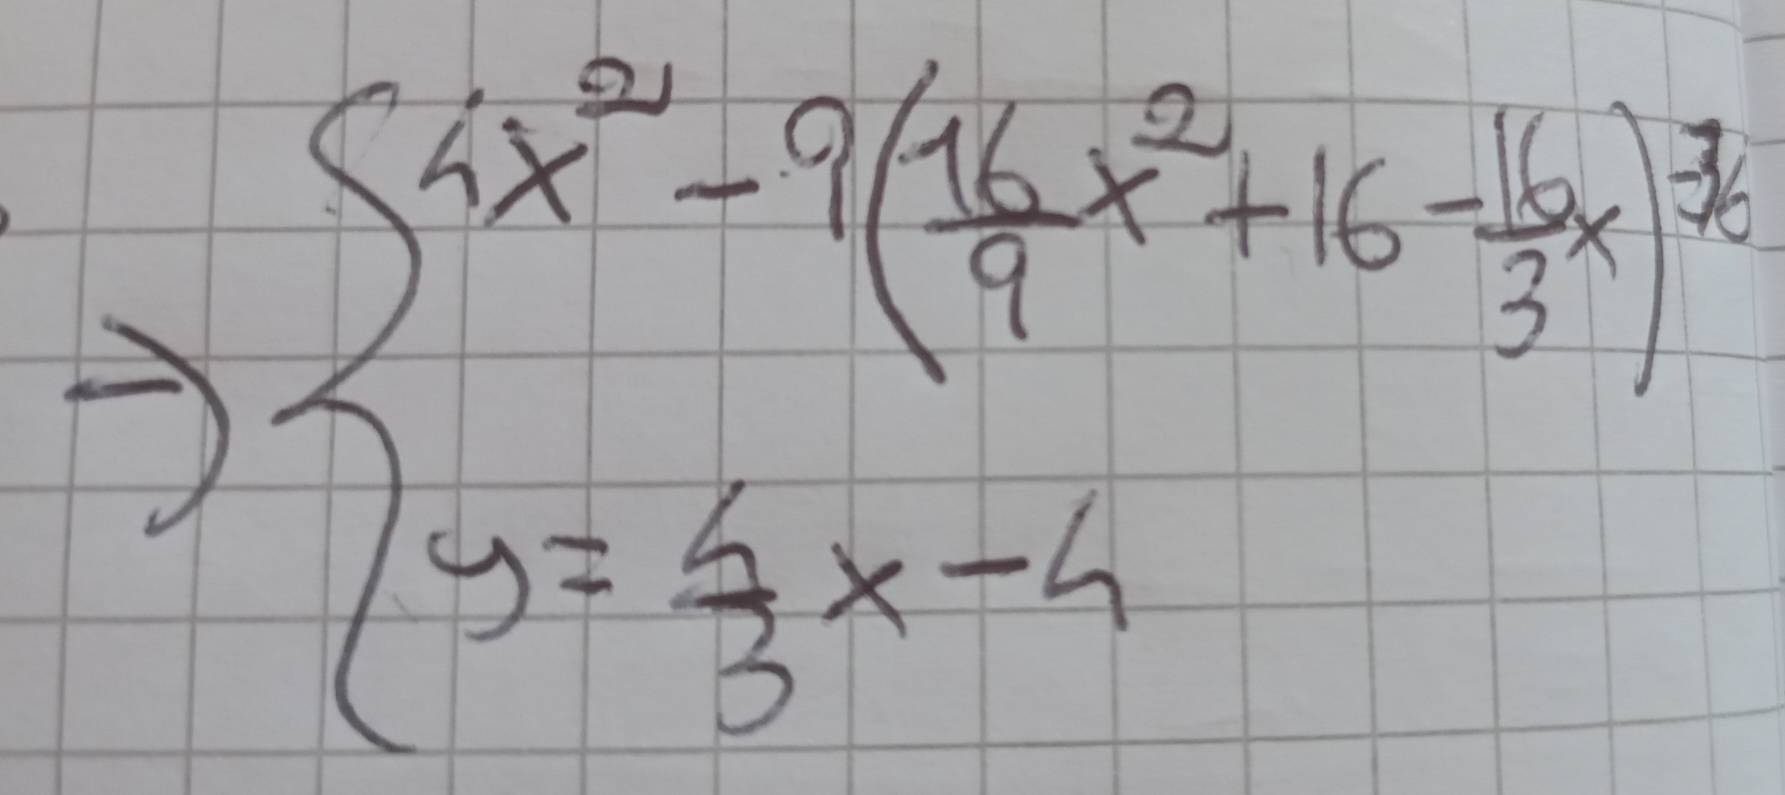 → { 4x² - 9(16/9 x² + 16 - 16/3 x) = 36
y = 4/3 x - 4